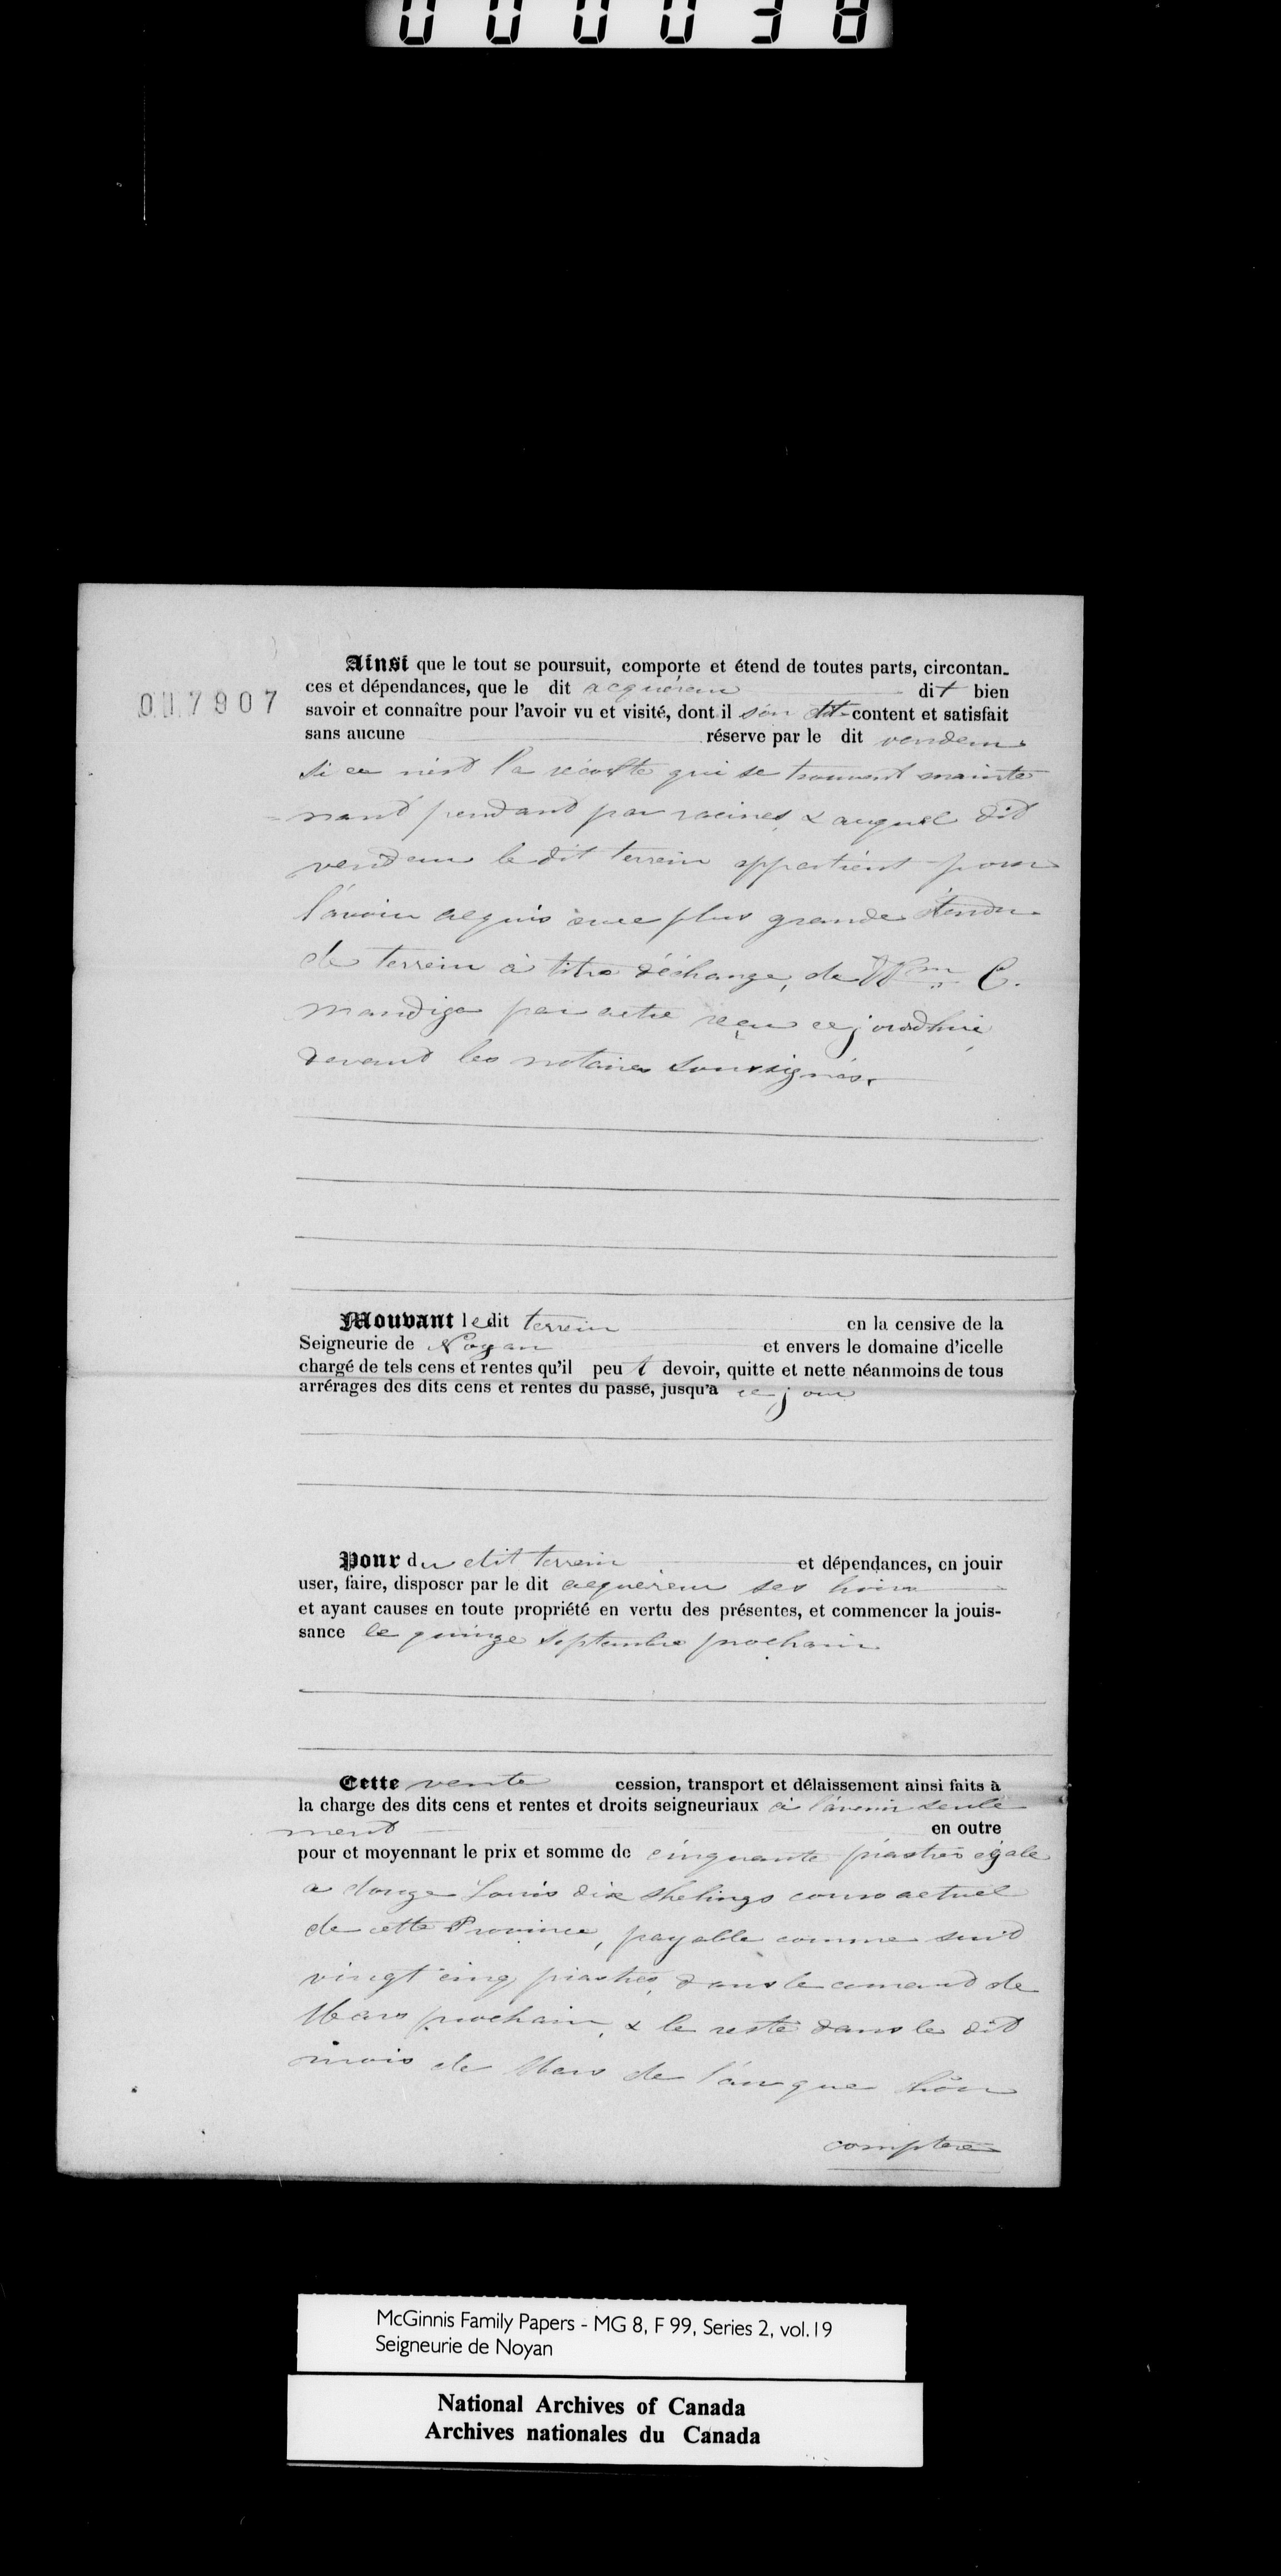 000038
007907
Ainsi que le tout se poursuit, comporte et étend de toutes parts, circontan-
ces et dépendances, que le dit acquéreur dit bien
savoir et connaître pour l'avoir vu et visité, dont il s'en dit content et satisfait
sans aucune réserve par le dit vendeur
si ce n'est la récolte qui se trouvent mainte
nant pendant par racines, & auquel dit
vendeur le dit terrein appartient pour
l'avoir acquis avec plus grande étendu
de terrein à titre d'échange, de Wm C.
Mandigo par acte reçu ce jourdhui
devant les notaires soussignés.
Mouvant le dit terrein en la censive de la
Seigneurie de Noyan et envers le domaine d'icelle
chargé de tels cens et rentes qu'il peut devoir, quitte et nette néanmoins de tous
arrérages des dits cens et rentes du passé, jusqu'à ce jour
Pour du dit terrein et dépendances, en jouir
user, faire, disposer par le dit acquéreur ses hoirs
et ayant causes en toute propriété en vertu des présentes, et commencer la jouis-
sance le quinze Septembre prochain
Cette vente cession, transport et délaissement ainsi faits à
la charge des dits cens et rentes et droits seigneuriaux à l'avenir seule
ment en outre
pour et moyennant le prix et somme de cinquante piastres égale
a douze Louis dix shelings cours actuel
de cette Province, payable comme suit
vingt cinq piastres, dans le courant de
Mars prochain, & le reste dans le dit
mois de Mars de l'an que l'on
comptera
McGinnis Family Papers - MG 8, F 99, Series 2, vol.19
Seigneurie de Noyan
National Archives of Canada
Archives nationales du Canada